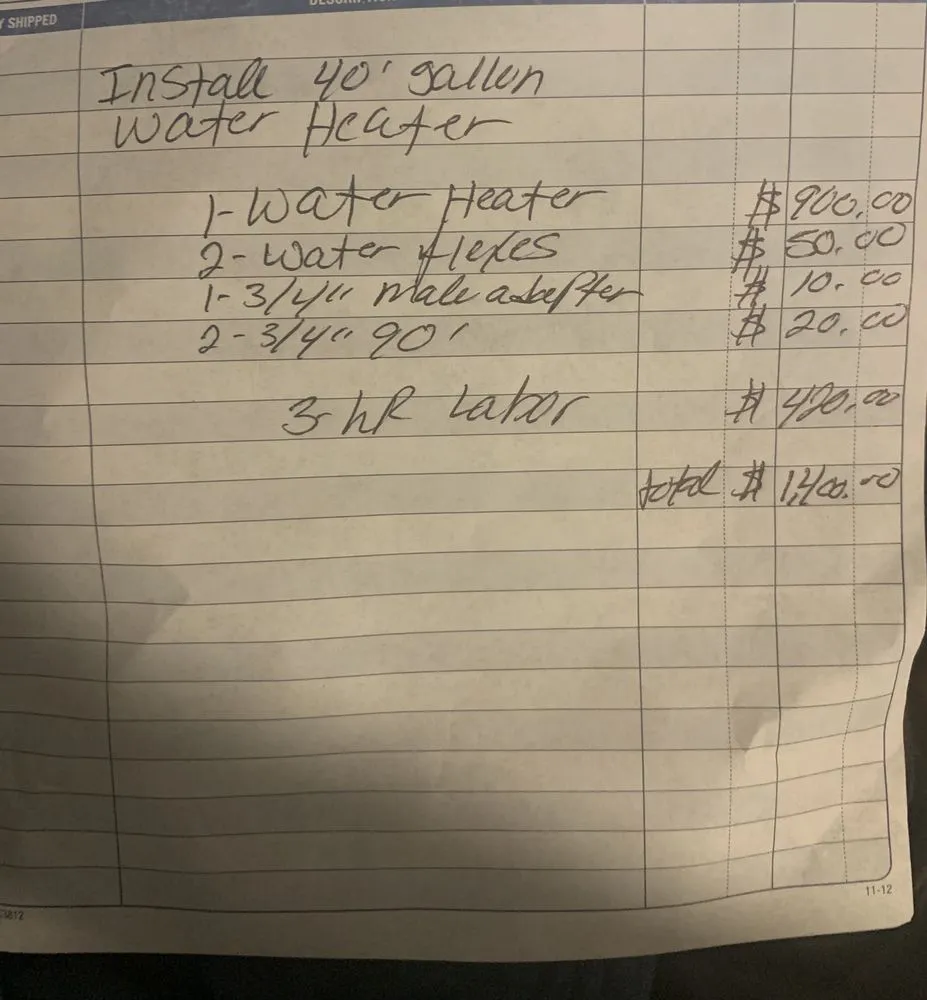 Y SHIPPED
Install 40' gallon
Water Heater
1- Water Heater $ 900.00
2- Water flexes $ 50.00
1- 3/4" male adapter $ 10.00
2- 3/4" 90' $ 20.00
3-hR Labor $ 420.00
total $ 1,400.00
11-12
3812